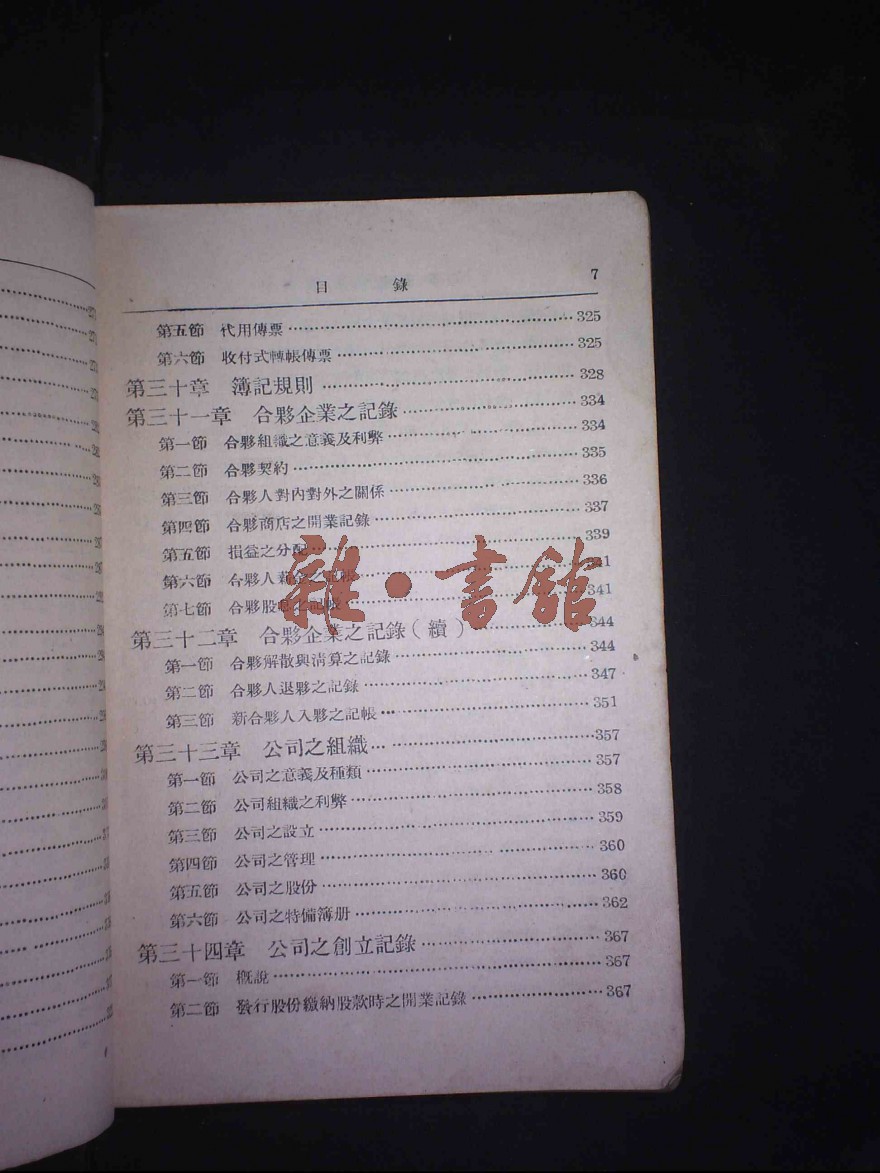 目錄 7
第五節 代用傳票 325
第六節 收付式轉帳傳票 325
第三十章 簿記規則 328
第三十一章 合夥企業之記錄 334
第一節 合夥組織之意義及利弊 334
第二節 合夥契約 335
第三節 合夥人對內對外之關係 336
第四節 合夥商店之開業記錄 337
第五節 損益之分配 339
第六節 合夥人薪金之記帳 341
第七節 合夥股息之記帳 341
雜·書館
第三十二章 合夥企業之記錄(續) 344
第一節 合夥解散與清算之記錄 344
第二節 合夥人退夥之記錄 347
第三節 新合夥人入夥之記帳 351
第三十三章 公司之組織 357
第一節 公司之意義及種類 357
第二節 公司組織之利弊 358
第三節 公司之設立 359
第四節 公司之管理 360
第五節 公司之股份 360
第六節 公司之特備簿册 362
第三十四章 公司之創立記錄 367
第一節 概說 367
第二節 發行股份繳納股款時之開業記錄 367